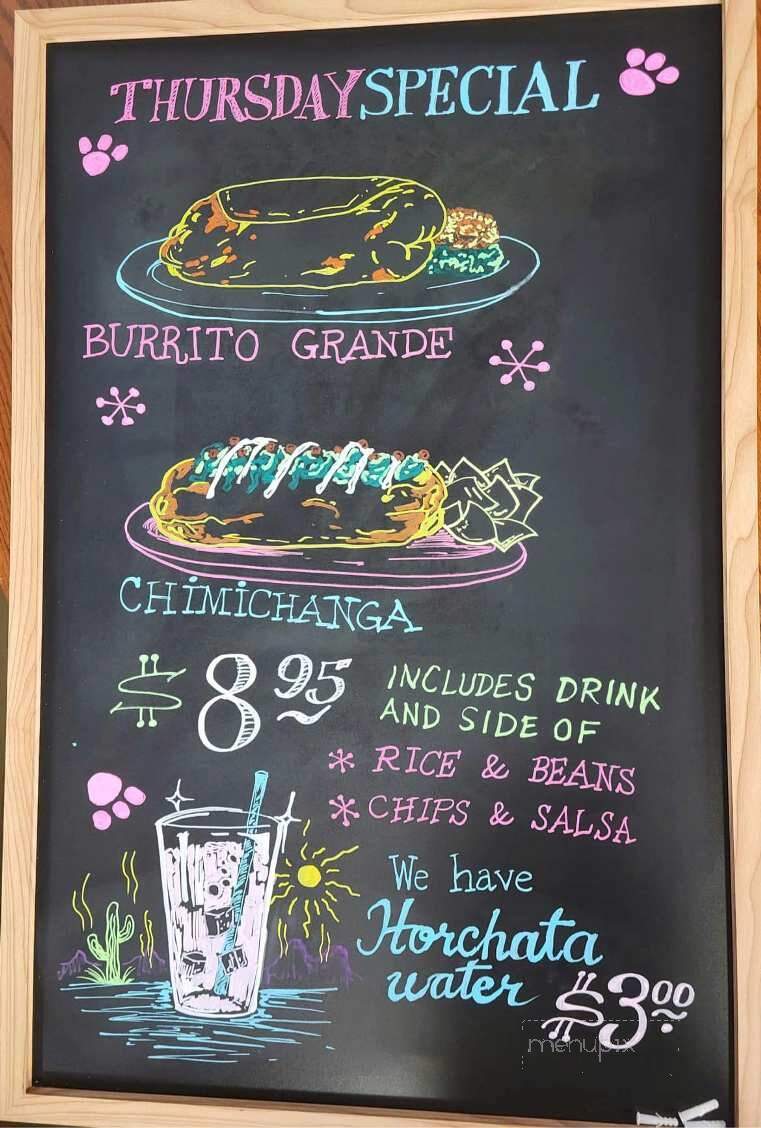 THURSDAY SPECIAL
BURRITO GRANDE
CHIMICHANGA
$8.95
INCLUDES DRINK
AND SIDE OF
* RICE & BEANS
* CHIPS & SALSA
We have
Horchata
water $3.00
menupix